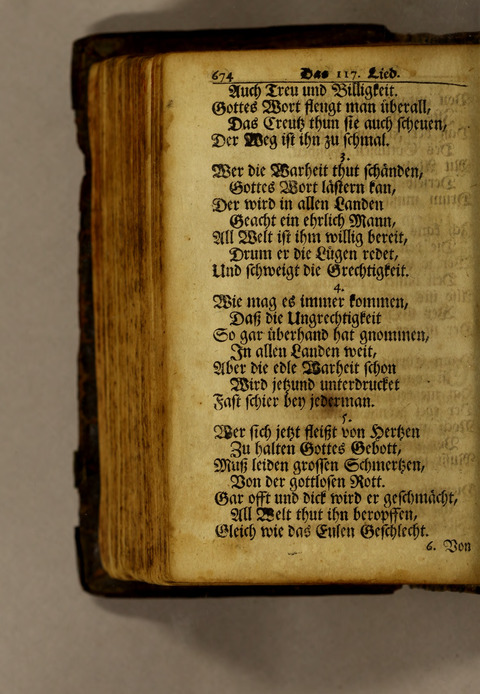 674 Das 117. Lied.
Auch Treu und Billigkeit.
Gottes Wort fleugt man überall,
Das Creutz thun sie auch scheuen,
Der Weg ist ihn zu schmal.
3.
Wer die Warheit thut schänden,
Gottes Wort lästern kan,
Der wird in allen Landen
Geacht ein ehrlich Mann,
All Welt ist ihm willig bereit,
Drum er die Lügen redet,
Und schweigt die Grechtigkeit.
4.
Wie mag es immer kommen,
Daß die Ungrechtigkeit
So gar überhand hat gnommen,
In allen Landen weit,
Aber die edle Warheit schon
Wird jetzund unterdrucket
Fast schier bey jederman.
5.
Wer sich jetzt fleißt von Hertzen
Zu halten Gottes Gebott,
Muß leiden grossen Schmertzen,
Von der gottlosen Rott.
Gar offt und dick wird er geschmächt,
All Welt thut ihn beropffen,
Gleich wie das Eulen Geschlecht.
6. Von